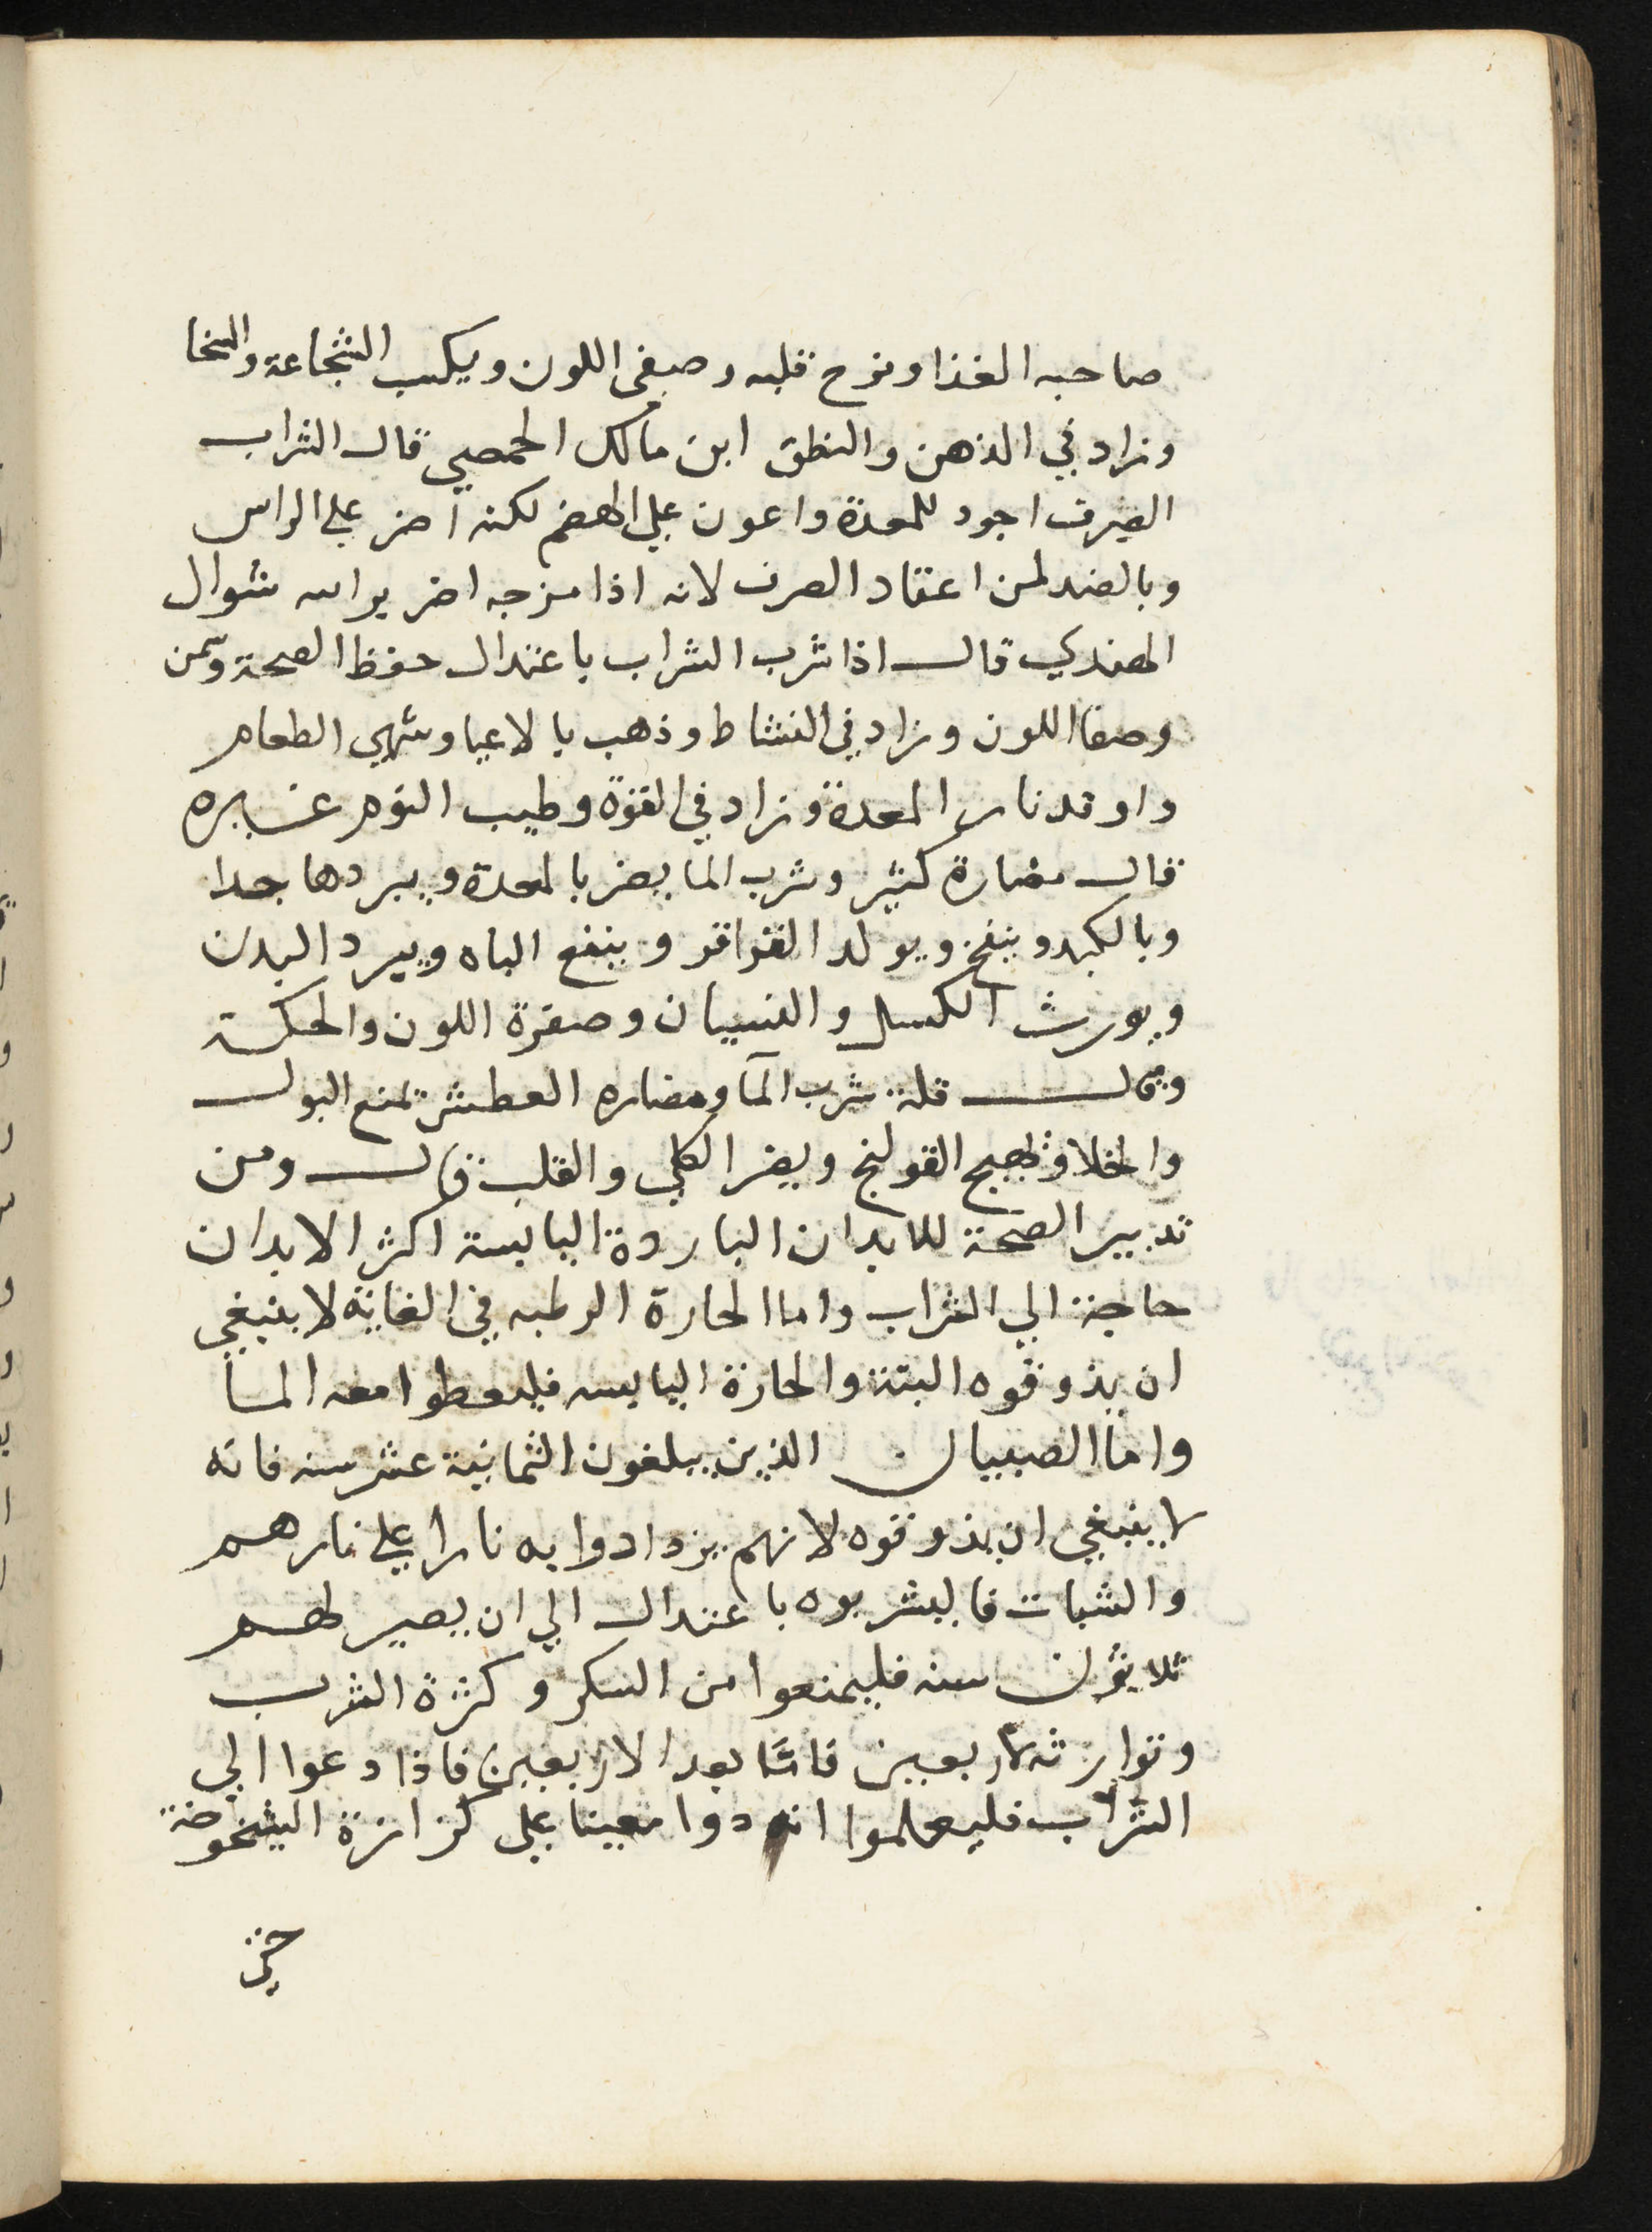 صاحبه الغذا وفرح قلبه وصفى اللون ويكسب الشجاعة والسخا
وزاد في الذهن والنطق ابن مالك الحمصي قال الشراب
الصرف اجود للمعدة واعون علي الهضم لكنه اضر علي الراس
وبالضد لمن اعتاد الصرف لانه اذا مزجه اضر براسه شوال
الهندي قال اذا شرب الشراب باعتدال حفظ الصحة وسمن
وصفا اللون وزاد في النشاط وذهب بالاعيا وشهي الطعام
واوقد نار المعدة وزاد في القوة وطيب النوم غيره
قال مضارة كثير وشرب الما يضر بالمعدة ويبردها جدا
وبالكبد وينفخ ويولد القراقر وينفع الباه ويبرد البدن
ويورث الكسل والنسيان وصفرة اللون والحكة
وقال قلة شرب المآ ومضاره العطش تمنع البول
والخلا وتهيج القولنج ويضر الكلي والقلب قال ومن
تدبير الصحة للابدان الباردة اليابسة اكثر الابدان
حاجة الي الشراب واما الحارة الرطبه في الغاية لا ينبغي
ان يذوقوه البتة والحارة اليابسه فليعطوا معه الما
واما الصبيان الذين يبلغون الثمانية عشر سنه فانه
لا ينبغي ان يذوقوه لانهم يزدادوا به نارا علي نارهم
والشبات فاليشربوه باعتدال الي ان يصير لهم
ثلاثون سنه فليمنعوا من السكر وكثرة الشرب
وتواترته لاربعين فامّا بعد الاربعين فاذا دعوا الي
الشراب فليعلموا انه دوا معينا علي كزازة الشيخوخة